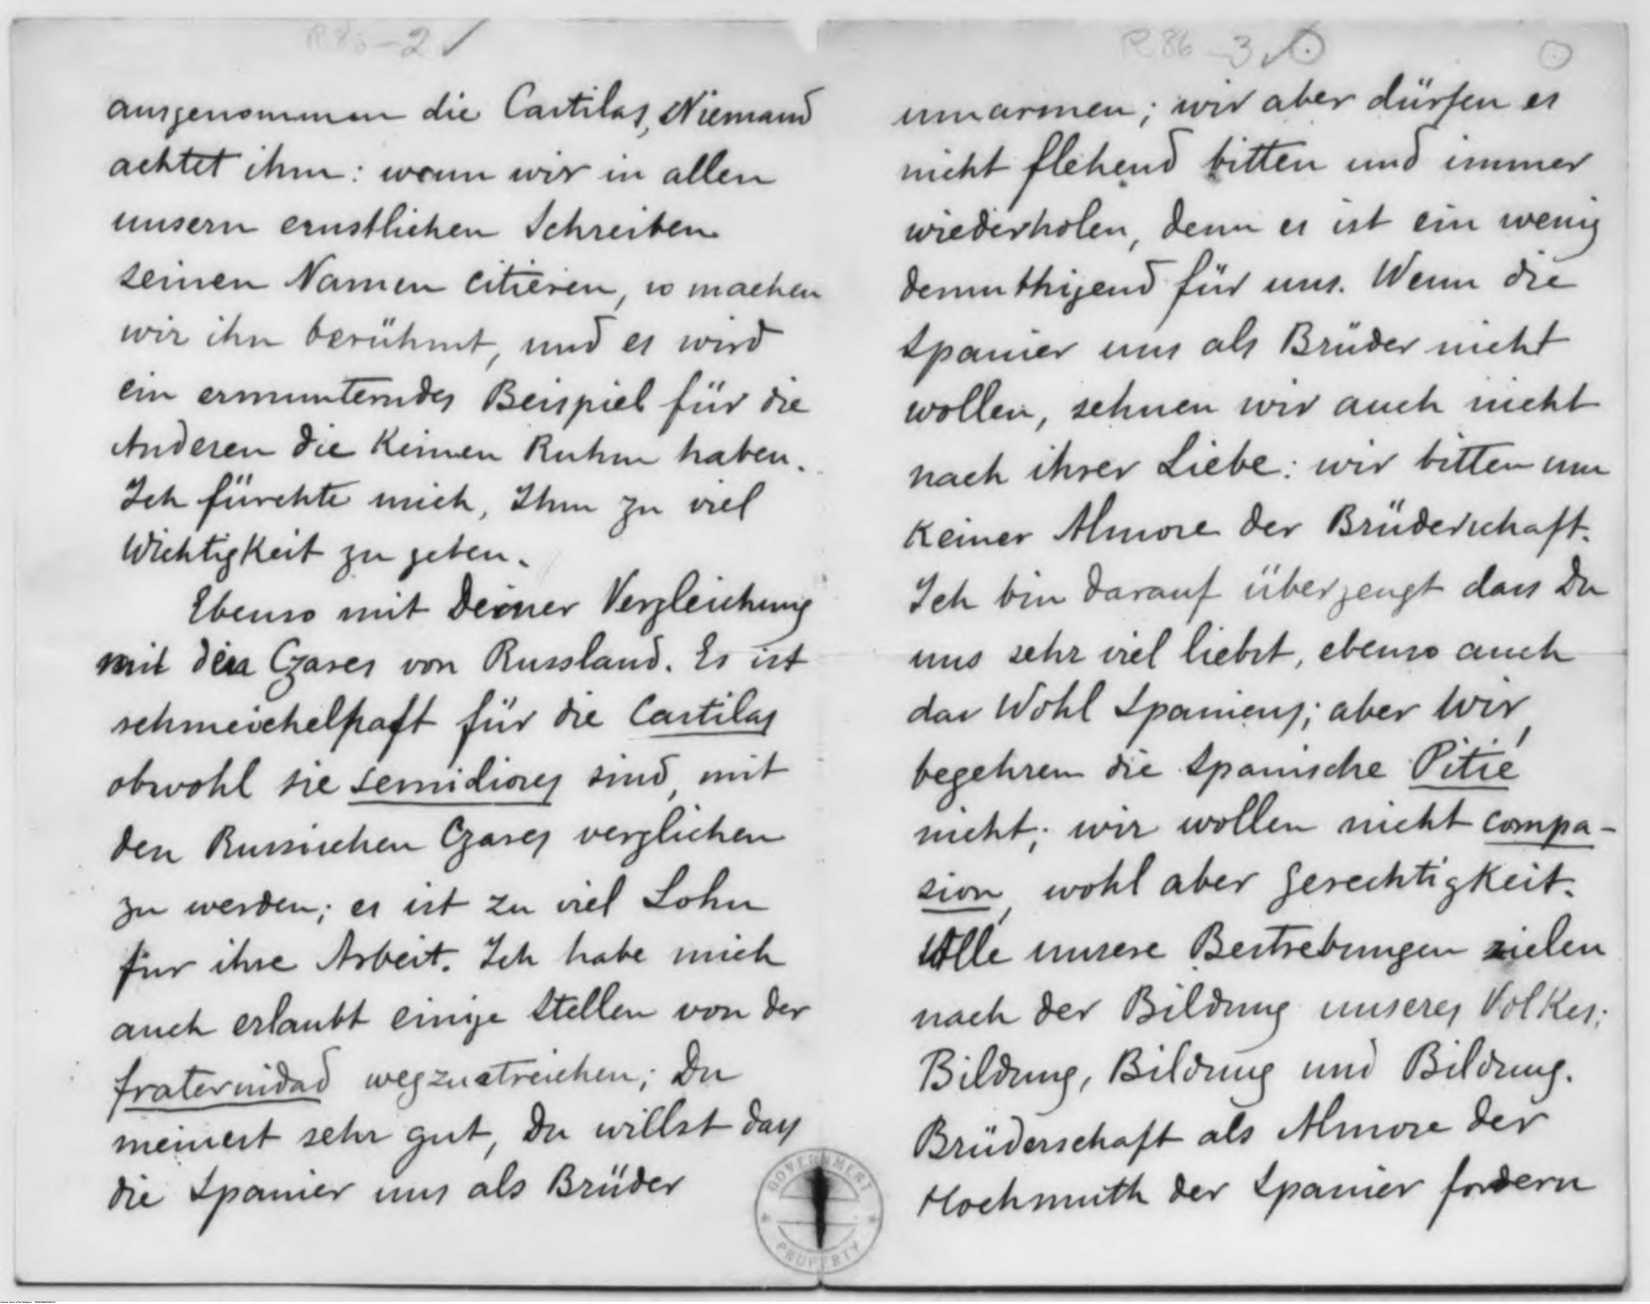 R85-2 ✓
ausgenommen die Castilas, Niemand
achtet ihm: wenn wir in allen
unsern ernstlichen Schreiben
seinen Namen citieren, so machen
wir ihn berühmt, und es wird
ein ermunterndes Beispiel für die
Anderen die Keinen Ruhm haben.
Ich fürchte mich, Ihm zu viel
Wichtigkeit zu geben.
Ebenso mit Deiner Vergleichung
mit den Czares von Russland. Es ist
schmeichelhaft für die Castilas
obwohl sie semidioses sind, mit
den Russischen Czares verglichen
zu werden; es ist zu viel Lohn
für ihre Arbeit. Ich habe mich
auch erlaubt einige Stellen von der
fraternidad wegzustreichen; Du
meinest sehr gut, Du willst das
die Spanier uns als Brüder
R86-3 ✓
umarmen; wir aber dürfen es
nicht flehend bitten und immer
wiederholen, denn es ist ein wenig
demuthigend für uns. Wenn die
Spanier uns als Brüder nicht
wollen, sehnen wir auch nicht
nach ihrer Liebe: wir bitten um
Keiner Almose der Brüderschaft.
Ich bin darauf überzeugt dass Du
uns sehr viel liebst, ebenso auch
das Wohl Spaniens; aber wir,
begehren die Spanische Pitié
nicht; wir wollen nicht compa-
sion, wohl aber Gerechtigkeit.
Alle unsere Bestrebungen zielen
nach der Bildung unseres Volkes:
Bildung, Bildung und Bildung.
Brüderschaft als Almose der
Hochmuth der Spanier fordern
GOVERNMENT
PROPERTY